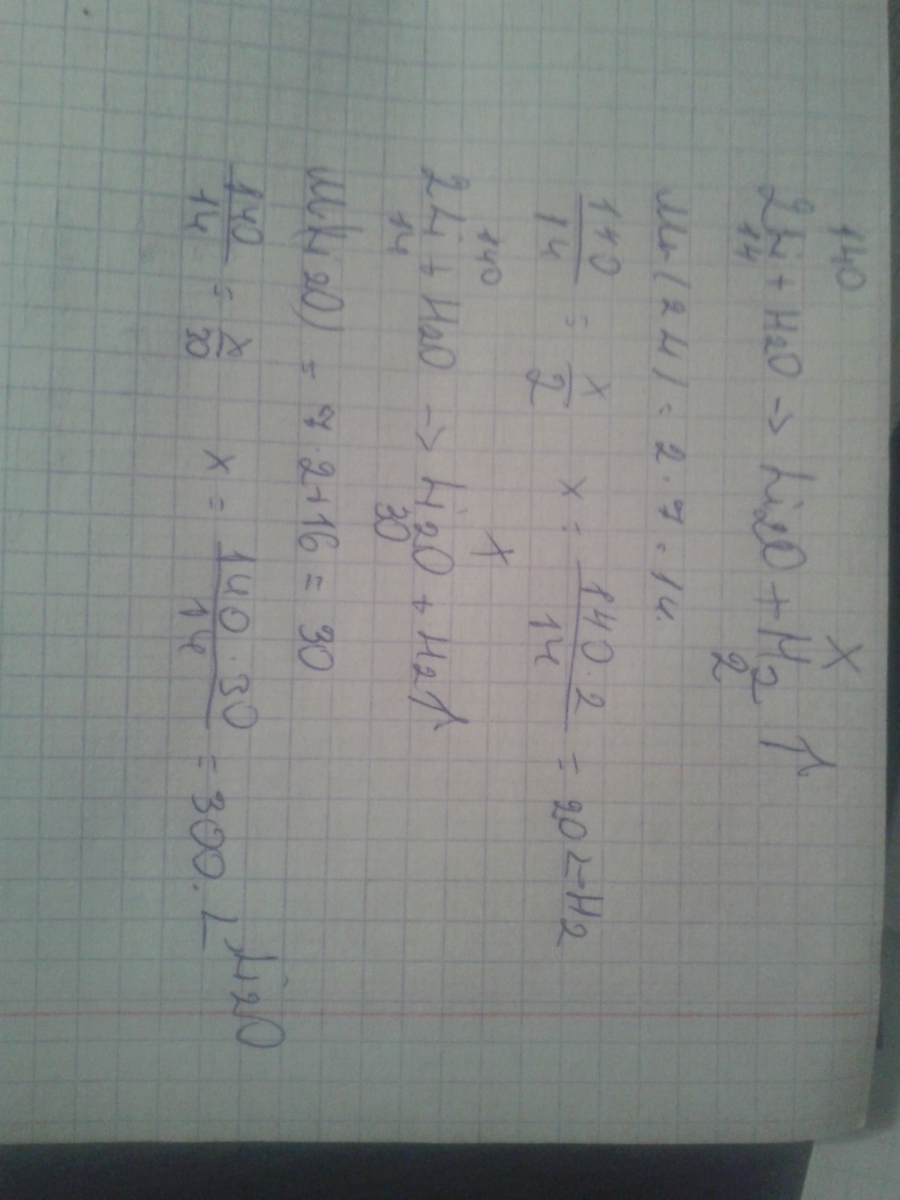 140 X
2Li + H2O -> Li2O + H2 ↑
14 2
Mr(2Li) = 2 · 7 = 14.
140/14 = x/2 x = 140 · 2/14 = 20 г H2
140 X
2Li + H2O -> Li2O + H2↑
14 30
M(Li2O) = 7 · 2 + 16 = 30
140/14 = x/30 x = 140 · 30/14 = 300. г Li2O